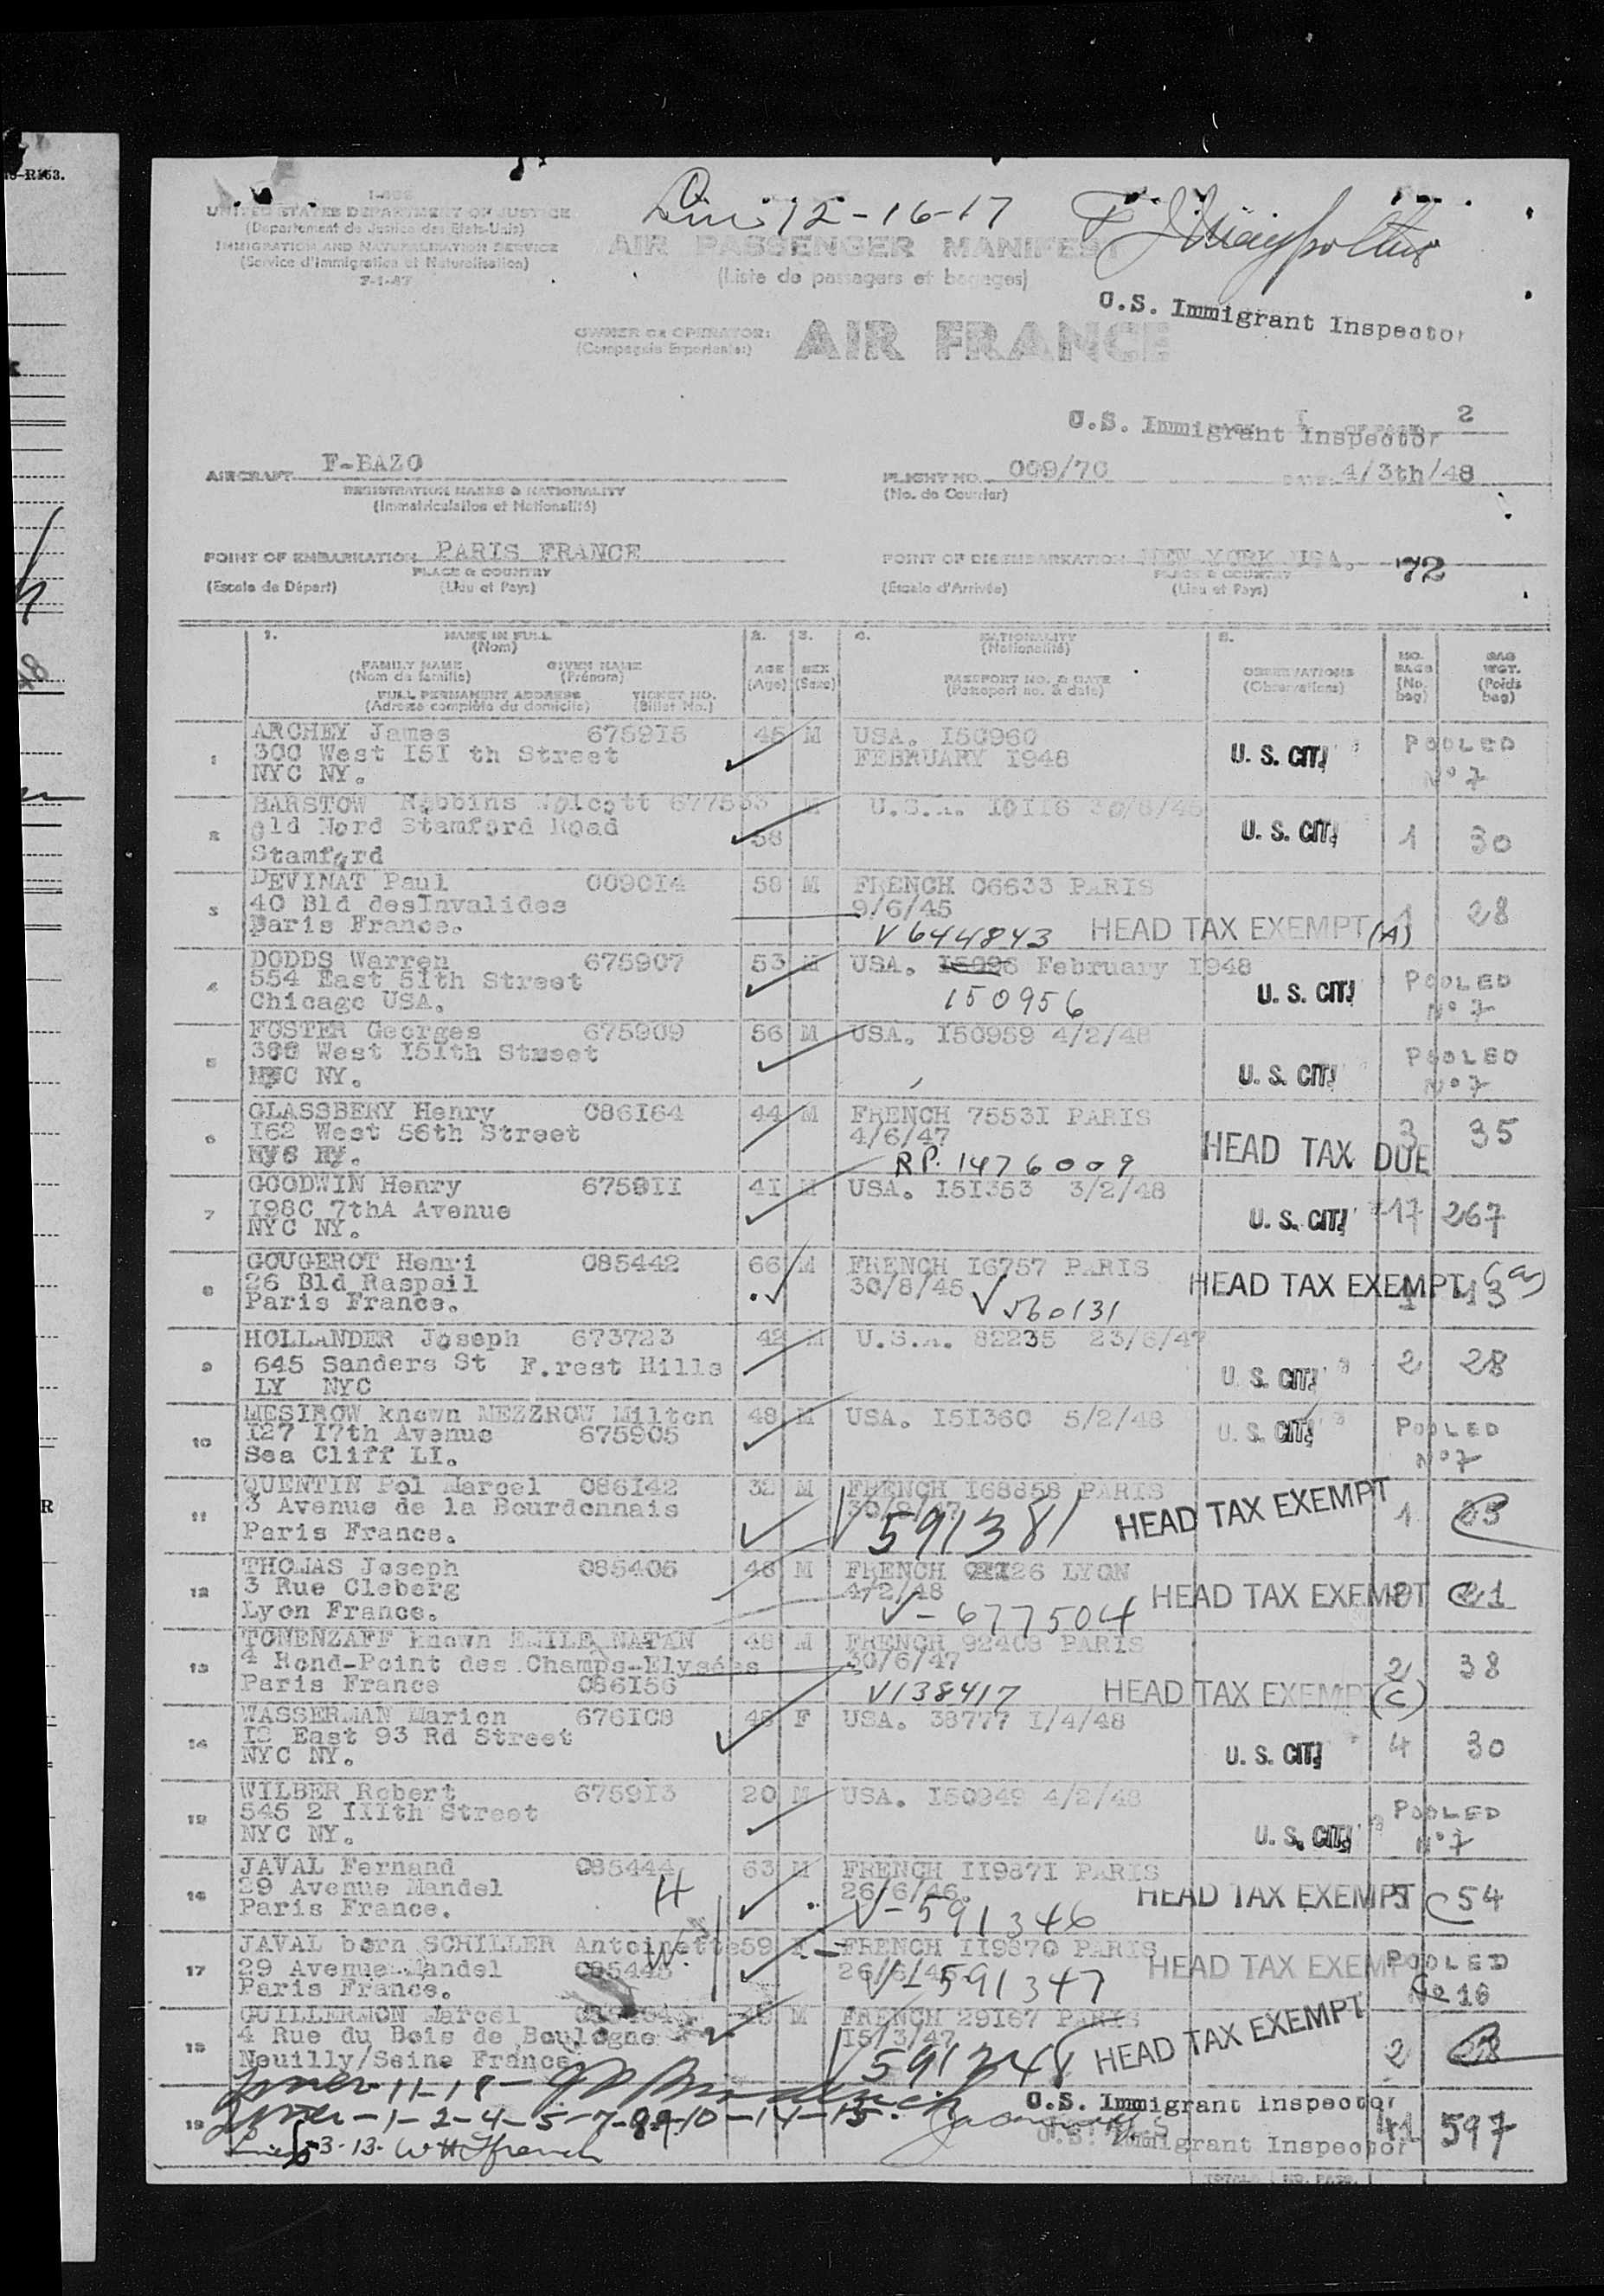 I-466
UNITED STATES DEPARTMENT OF JUSTICE
(Departement de Justice des Etats-Unis)
IMMIGRATION AND NATURALISATION SERVICE
(Service d'Immigration et Naturalisation)
7-1-47
12-16-17
AIR PASSENGER MANIFEST
(Liste de passagers et bagages)
U.S. Immigrant Inspector
OWNER OR OPERATOR:
AIR FRANCE
U.S. Immigrant Inspector
2
AIRCRAFT F-BAZO
REGISTRATION MARKS & NATIONALITY
(Immatriculation et Nationalité)
FLIGHT NO. 009/70 DATE: 4/3th/48
(No. de Courrier)
POINT OF EMBARKATION PARIS FRANCE
PLACE & COUNTRY
(Escale de Départ) (Lieu et Pays)
POINT OF DISEMBARKATION NEW YORK USA. 72
PLACE & COUNTRY
(Escale d'Arrivée) (Lieu et Pays)
1. NAME IN FULL 2. 3. 4. NATIONALITY 5.
(Nom) (Nationalité)
FAMILY NAME GIVEN NAME AGE SEX OBSERVATIONS NO. BAGS BAG WGT.
(Nom de famille) (Prénom) (Age) (Sexe) PASSPORT NO. & DATE (Observations) (No. bag) (Poids bag)
FULL PERMANENT ADDRESS TICKET NO. (Passeport no. & date)
(Adresse complète du domicile) (Billet No.)
1 ARCHEY James 675915 45 M USA. I50960 U. S. CIT. POOLED
300 West I5I th Street FEBRUARY 1948 N° 7
NYC NY.
2 BARSTOW Robbins Wolcott M U.S.A. U. S. CIT. 1 30
old Nord Stamford Road 58
Stamford
3 DEVINAT Paul 009014 58 M FRENCH 06633 PARIS 1 28
40 Bld desInvalides 9/6/45
Paris France. V644843 HEAD TAX EXEMPT (A)
4 DODDS Warren 675907 53 M USA. I5096 February 1948 POOLED
554 East 51th Street 150956 U. S. CIT. N° 7
Chicago USA.
5 FOSTER Georges 675909 56 M USA. I50959 4/2/48 POOLED
West I5Ith Street U. S. CIT. N° 7
NYC NY.
6 GLASSBERY Henry 086I64 44 M FRENCH 7553I PARIS 3 35
I62 West 56th Street 4/6/47 HEAD TAX DUE
NYC NY. RP. 1476009
7 GOODWIN Henry 6759II 4I M USA. I5I353 3/2/48 U. S. CIT. 17 267
I980 7thA Avenue
NYC NY.
8 GOUGEROT Henri 085442 66 M FRENCH I6757 PARIS HEAD TAX EXEMPT (a)
26 Bld Raspail 30/8/45 1 13
Paris France. V560131
9 HOLLANDER Joseph 673723 42 M U.S.A. 82235 23/6/47 2 28
645 Sanders St F.rest Hills U. S. CIT.
LY NYC
10 MESIROW known MEZZROW Milton 48 M USA. I5I360 5/2/48 U. S. CIT. POOLED
I27 I7th Avenue 675905 N° 7
Sea Cliff LI.
11 QUENTIN Pol Marcel 086I42 32 M FRENCH I68858 PARIS HEAD TAX EXEMPT 1
3 Avenue de la Bourdonnais 30/8/47
Paris France. V591381
12 THOMAS Joseph 085405 48 M FRENCH LYON HEAD TAX EXEMPT 21
3 Rue Cleberg 4/2/48
Lyon France. V-677504
13 TONENZAFF known EMILE NATAN 48 M FRENCH 92408 PARIS 2 38
4 Rond-Point des Champs-Elysées 30/6/47
Paris France 086I56 V138417 HEAD TAX EXEMPT (C)
14 WASSERMAN Marion 676I08 48 F USA. 38777 I/4/48 U. S. CIT. 4 30
I2 East 93 Rd Street
NYC NY.
15 WILBER Robert 6759I3 20 M USA. I50949 4/2/48 POOLED
545 2 IIIth Street U. S. CIT. N° 7
NYC NY.
16 JAVAL Fernand 085444 63 M FRENCH II987I PARIS HEAD TAX EXEMPT 5 54
29 Avenue Mandel H 26/6/46.
Paris France. V-591346
17 JAVAL born SCHILLER Antoinette 59 FRENCH II9870 PARIS HEAD TAX EXEMPT POOLED
29 Avenue Mandel 085445 W 16
Paris France. V-591347
18 GUILLERMON Marcel 48 M FRENCH 29I67 PARIS HEAD TAX EXEMPT 2
4 Rue du Bois de Boulogne I5/3/47
Neuilly/Seine France 591348
11-18
U.S. Immigrant Inspector
19 1-2-4-5-7-89-10-14-15. 41 597
U.S. Immigrant Inspector
3-13. W H French
TOTALS NO. PASS.